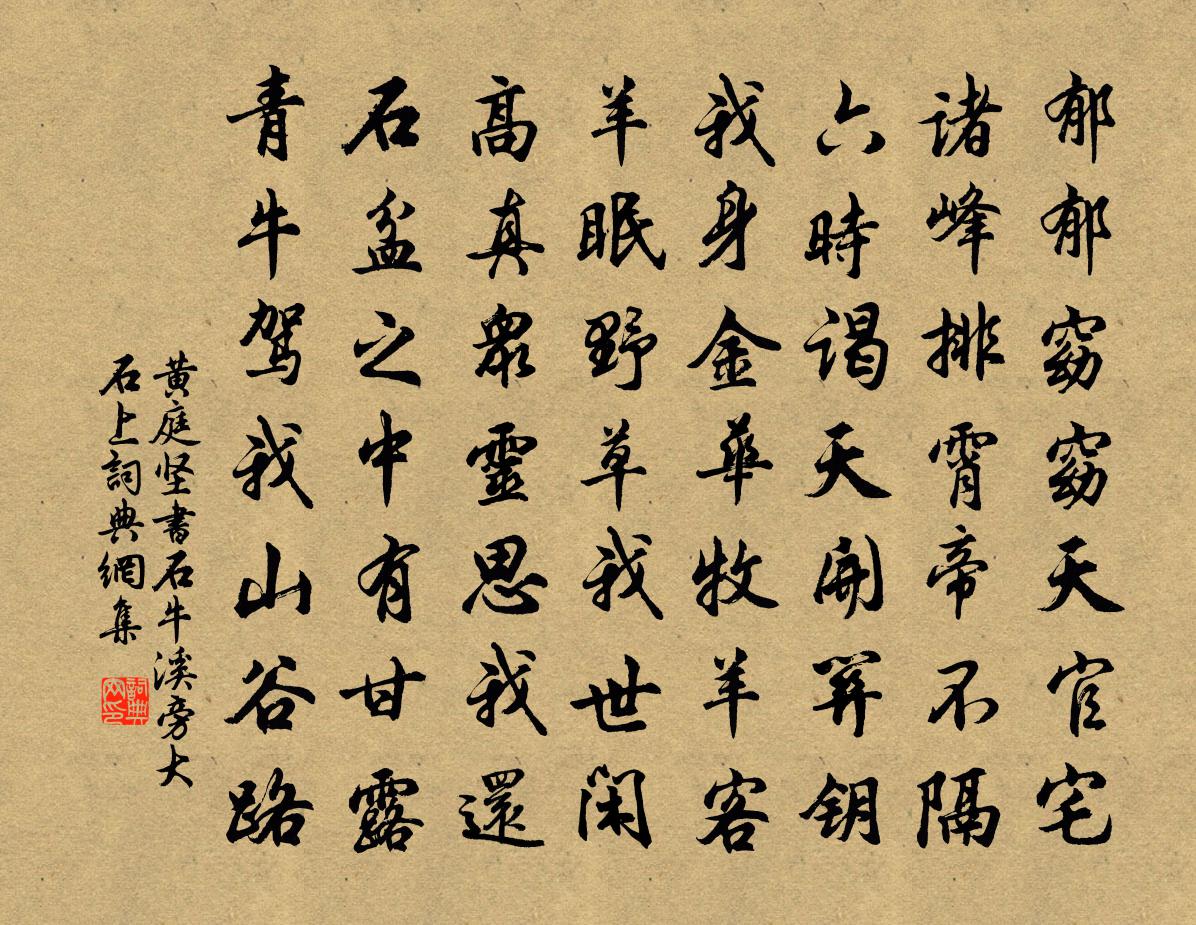 郁郁窈窈天官宅
诸峰排霄帝不隔
六時谒天開関钥
我身金華牧羊客
羊眠野草我世闲
髙真眾靈思我還
石盆之中有甘露
青牛驾我山谷路
黄庭坚書石牛溪旁大
石上詞典網集
詞典网印